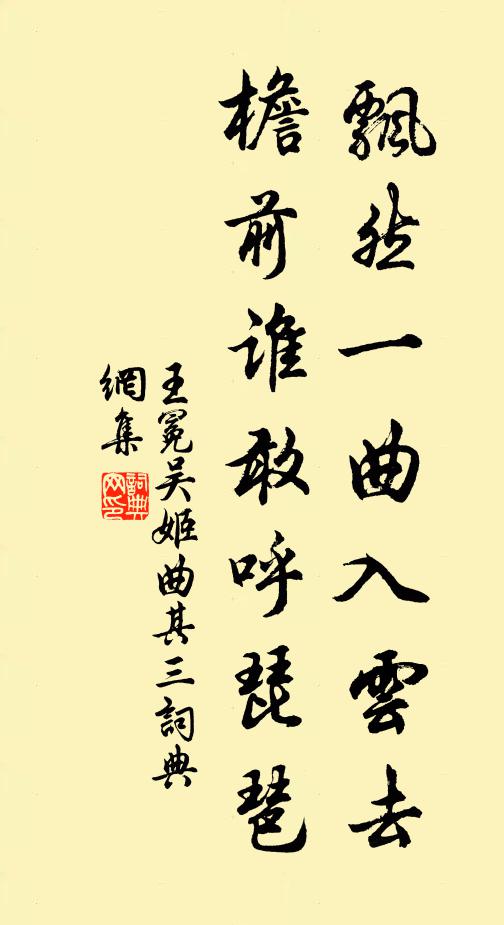 飄然一曲入雲去
檐前誰敢呼琵琶
王冕吳姬曲其三詞典
網集
詞典
网印